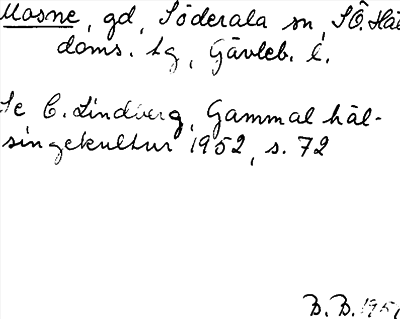 Mosne, gd, Söderala sn, SÖ. Häl
doms. tg, Gävleb. l.
Se C. Lindberg, Gammal häl-
singekultur 1952, s. 72
B. B. 195